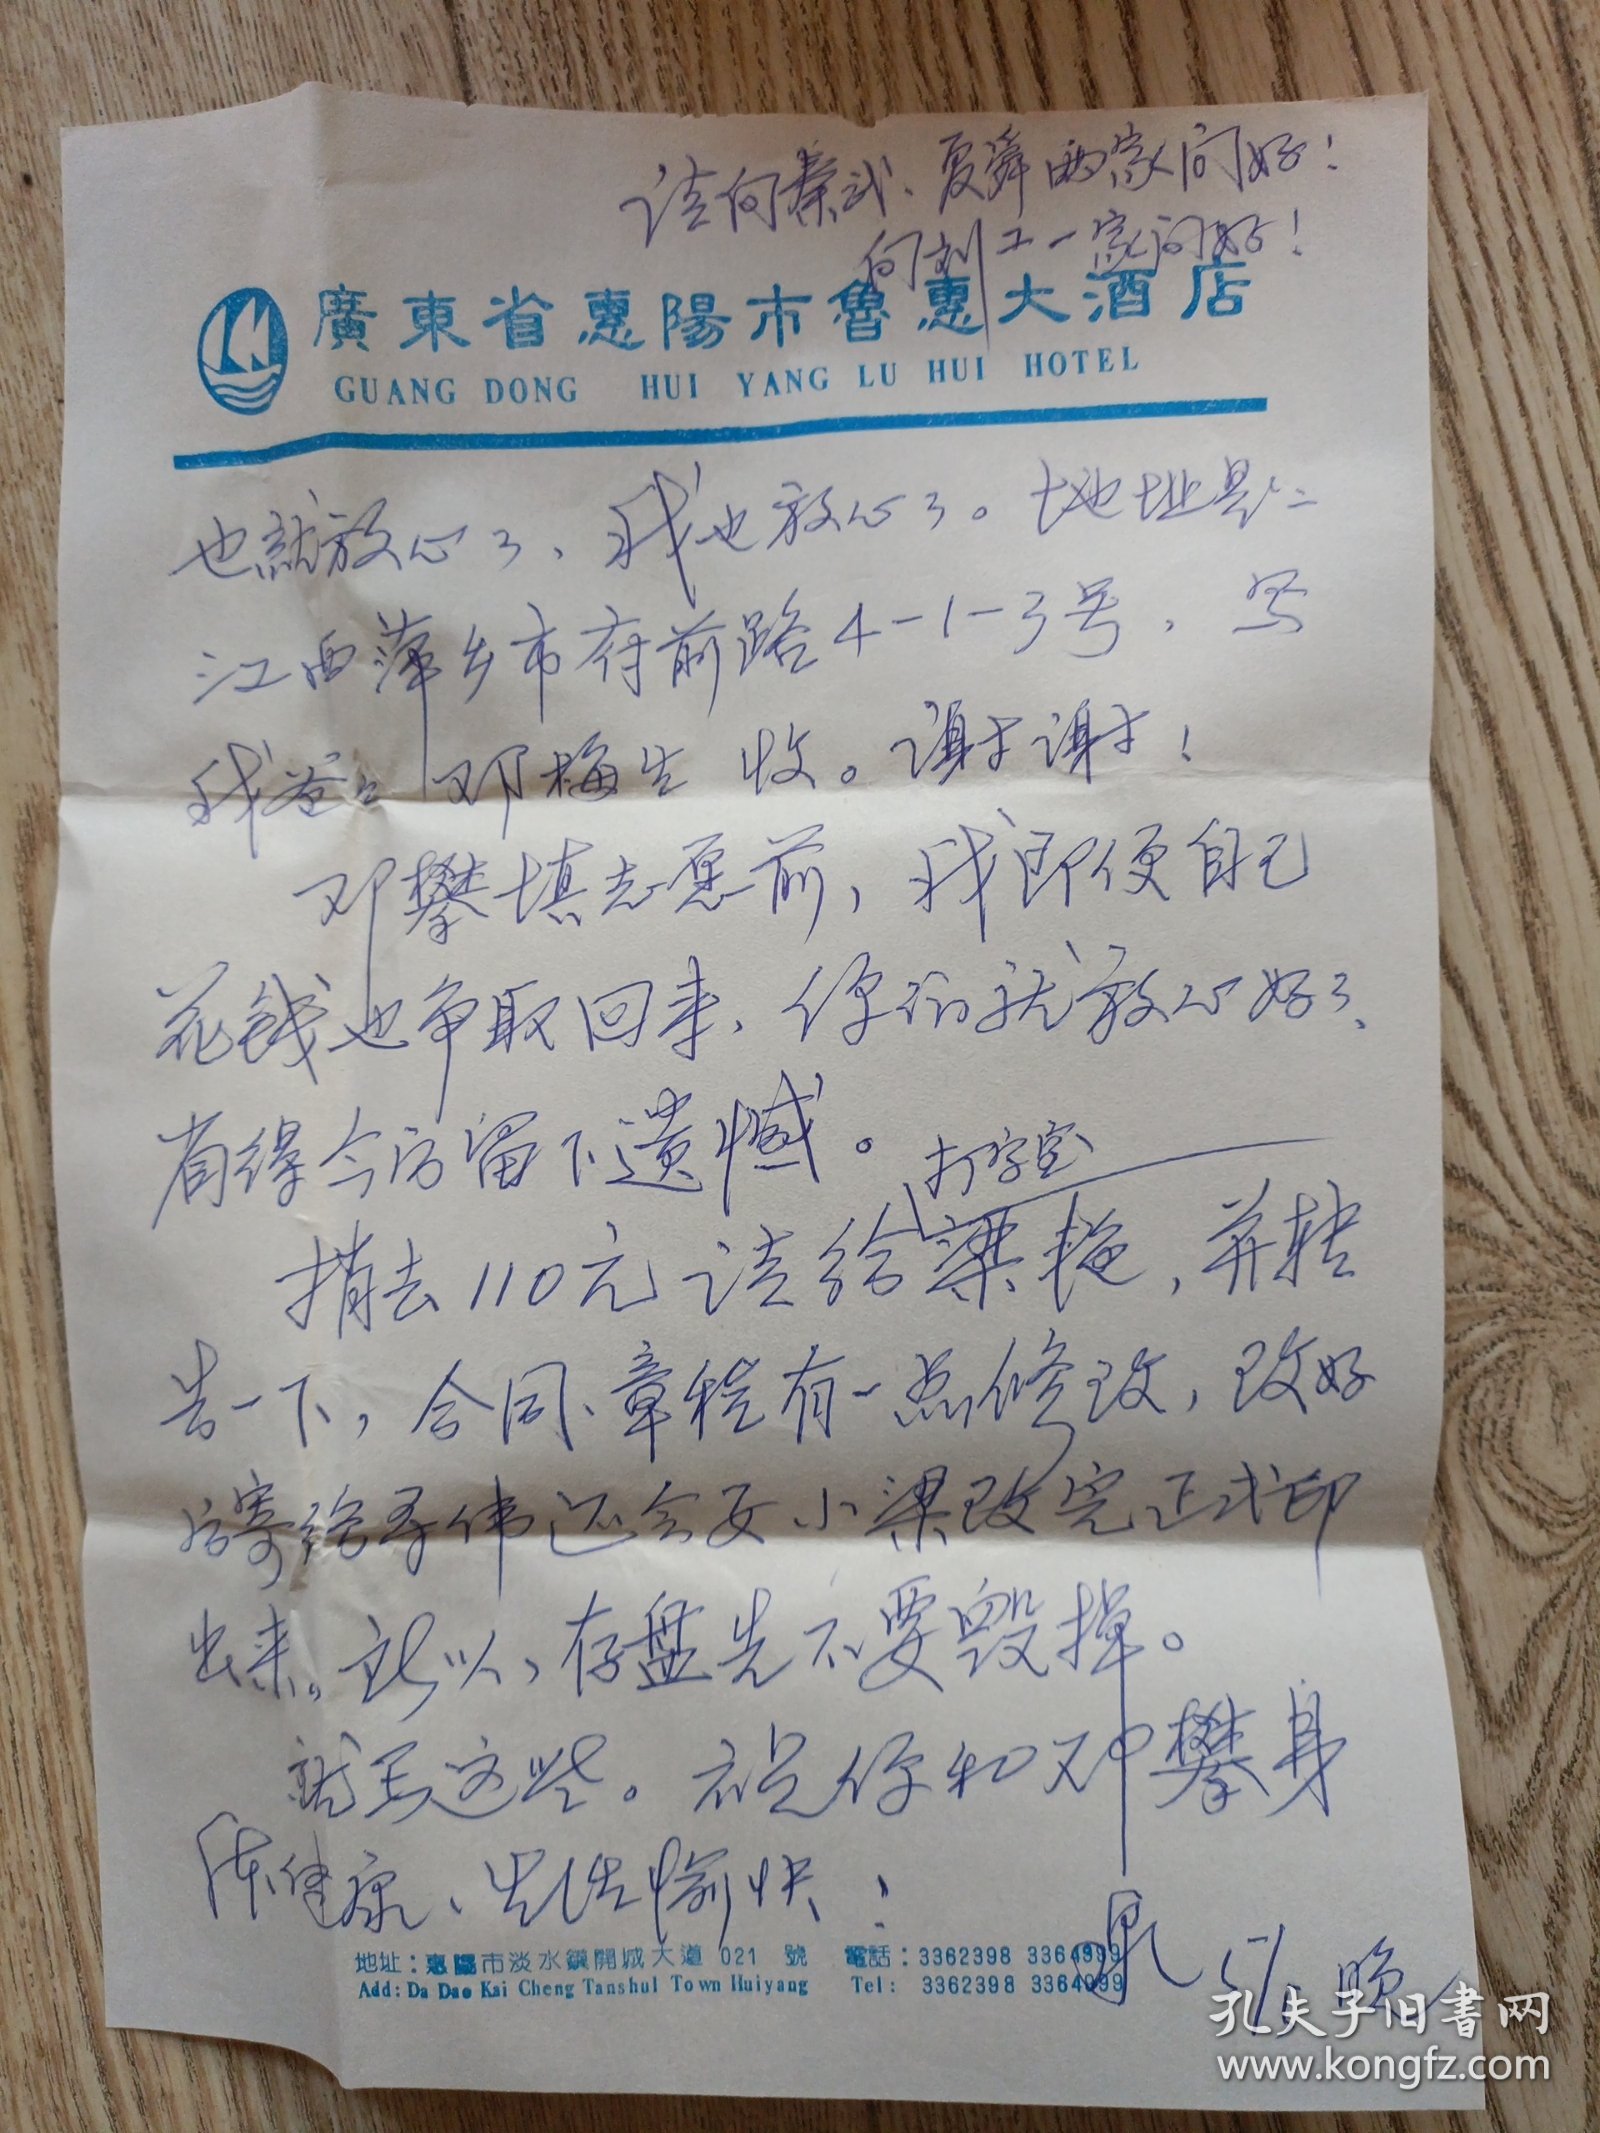 请向秦武、夏舜两家问好！
向刘工一家问好！
廣東省惠陽市魯惠大酒店
GUANG DONG HUI YANG LU HUI HOTEL
也就放心了、我也放心了。地址是：
江西萍乡市府前路4-1-3号，写
我爸爸邓梅生 收。谢谢！
邓攀填志愿前，我即便自己
花钱也争取回来，你们就放心好了、
省得今后留下遗憾。
打字室
捎去110元请给梁艳，并转
告一下，合同、章程有一点修改，改好
后寄给 伟还会要小梁改完正式印
出来。所以，存盘先不要毁掉。
就写这些。祝你和邓攀身
体健康、生活愉快！
晚
地址：惠陽市淡水鎮開城大道 021 號 電話：3362398 3364999
Add: Da Dao Kai Cheng Tanshul Town Huiyang Tel: 3362398 3364999
孔夫子旧书网
www.kongfz.com